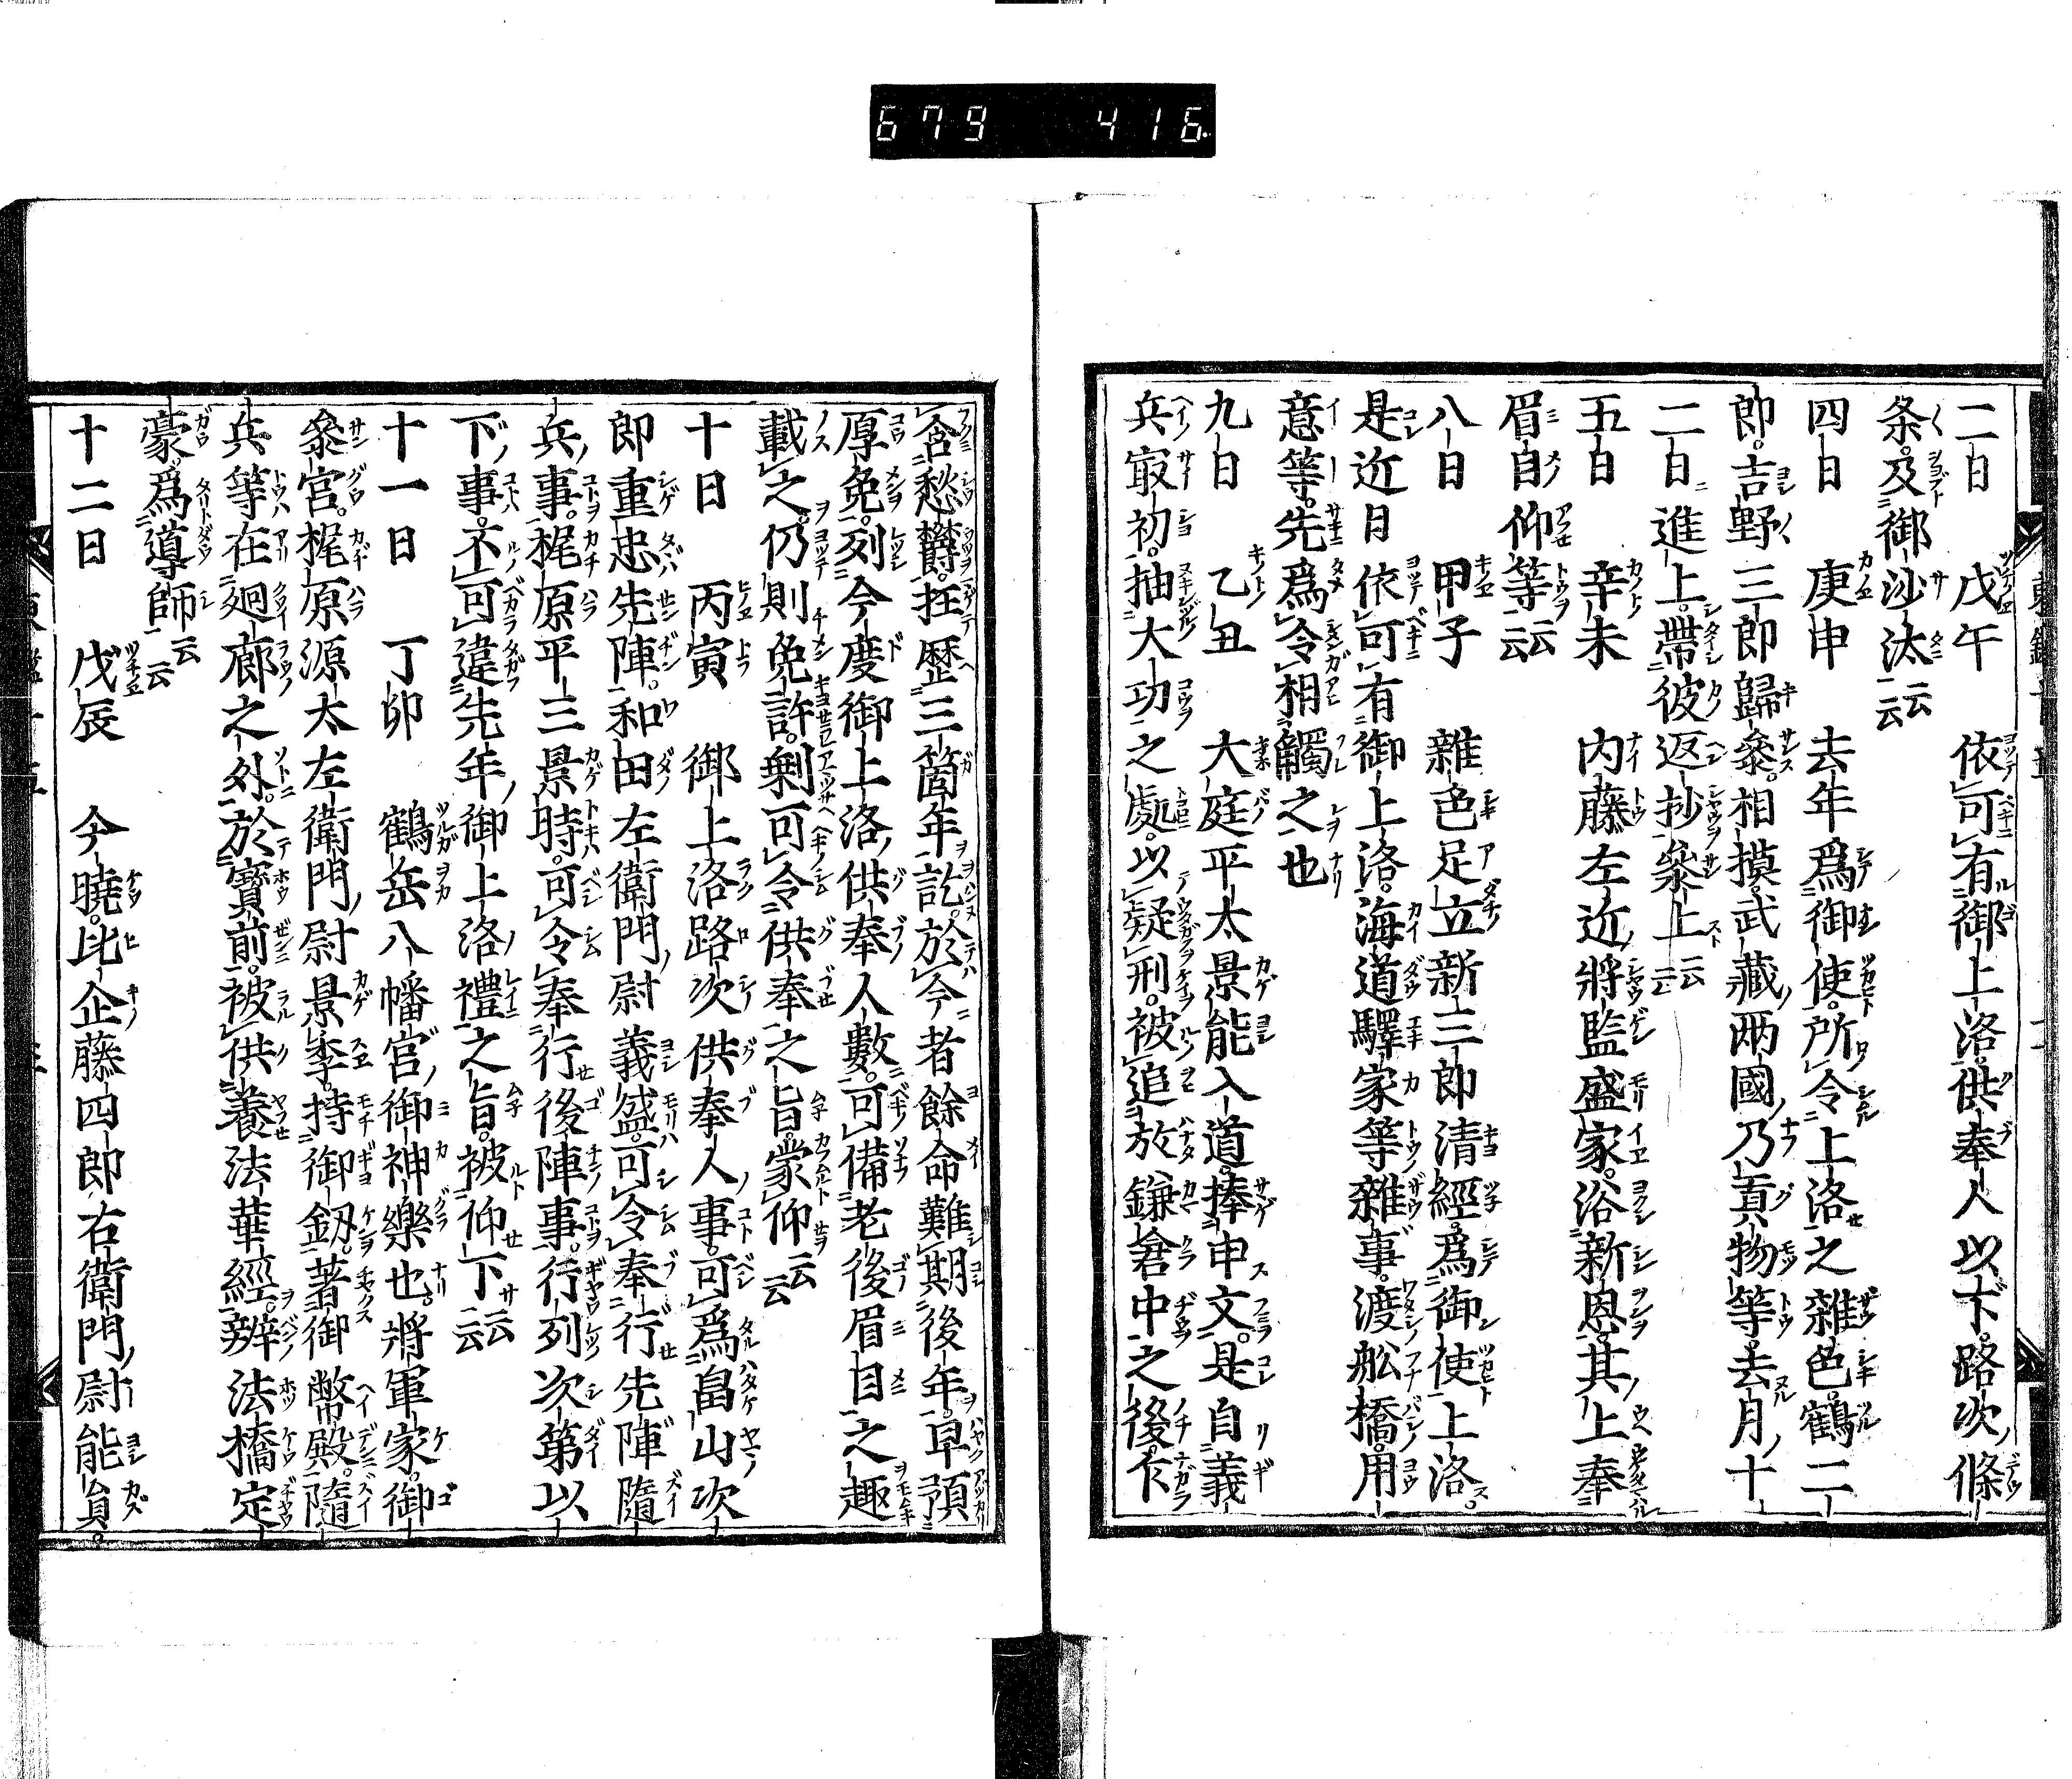 679 416
二日 戊午 依可有御上洛供奉人以下路次條
条及御沙汰云云
四日 庚申 去年爲御使所令上洛之雜色鶴二
郎吉野三郎歸參相摸武藏兩國乃貢物等去月十
二日進上帶彼返抄參上云云
五日 辛未 内藤左近將監盛家浴新恩其上奉
眉目仰等云云
八日 甲子 雜色足立新三郎清經爲御使上洛
是近日依可有御上洛海道驛家等雜事渡舩橋用
意等先爲令相觸之也
九日 乙丑 大庭平太景能入道捧申文是自義
兵㝡初抽大功之處以疑刑被追放鎌倉中之後乍
含愁欝抂歷三箇年訖於今者餘命難期後年早預
厚免列今度御上洛供奉人數可備老後眉目之趣
載之仍則免許剰可令供奉之旨蒙仰云云
十日 丙寅 御上洛路次供奉人事可爲畠山次
郎重忠先陣和田左衛門尉義盛可令奉行先陣隨
兵事梶原平三景時可令奉行後陣事行列次第以
下事不可違先年御上洛禮之旨被仰下云云
十一日 丁卯 鶴岳八幡宮御神樂也將軍家御
參宮梶原源太左衛門尉景季持御劔著御幣殿隨
兵等在廻廊之外於寳前被供養法華經辨法橋定
豪爲導師云云
十二日 戊辰 今曉比企藤四郎右衛門尉能員